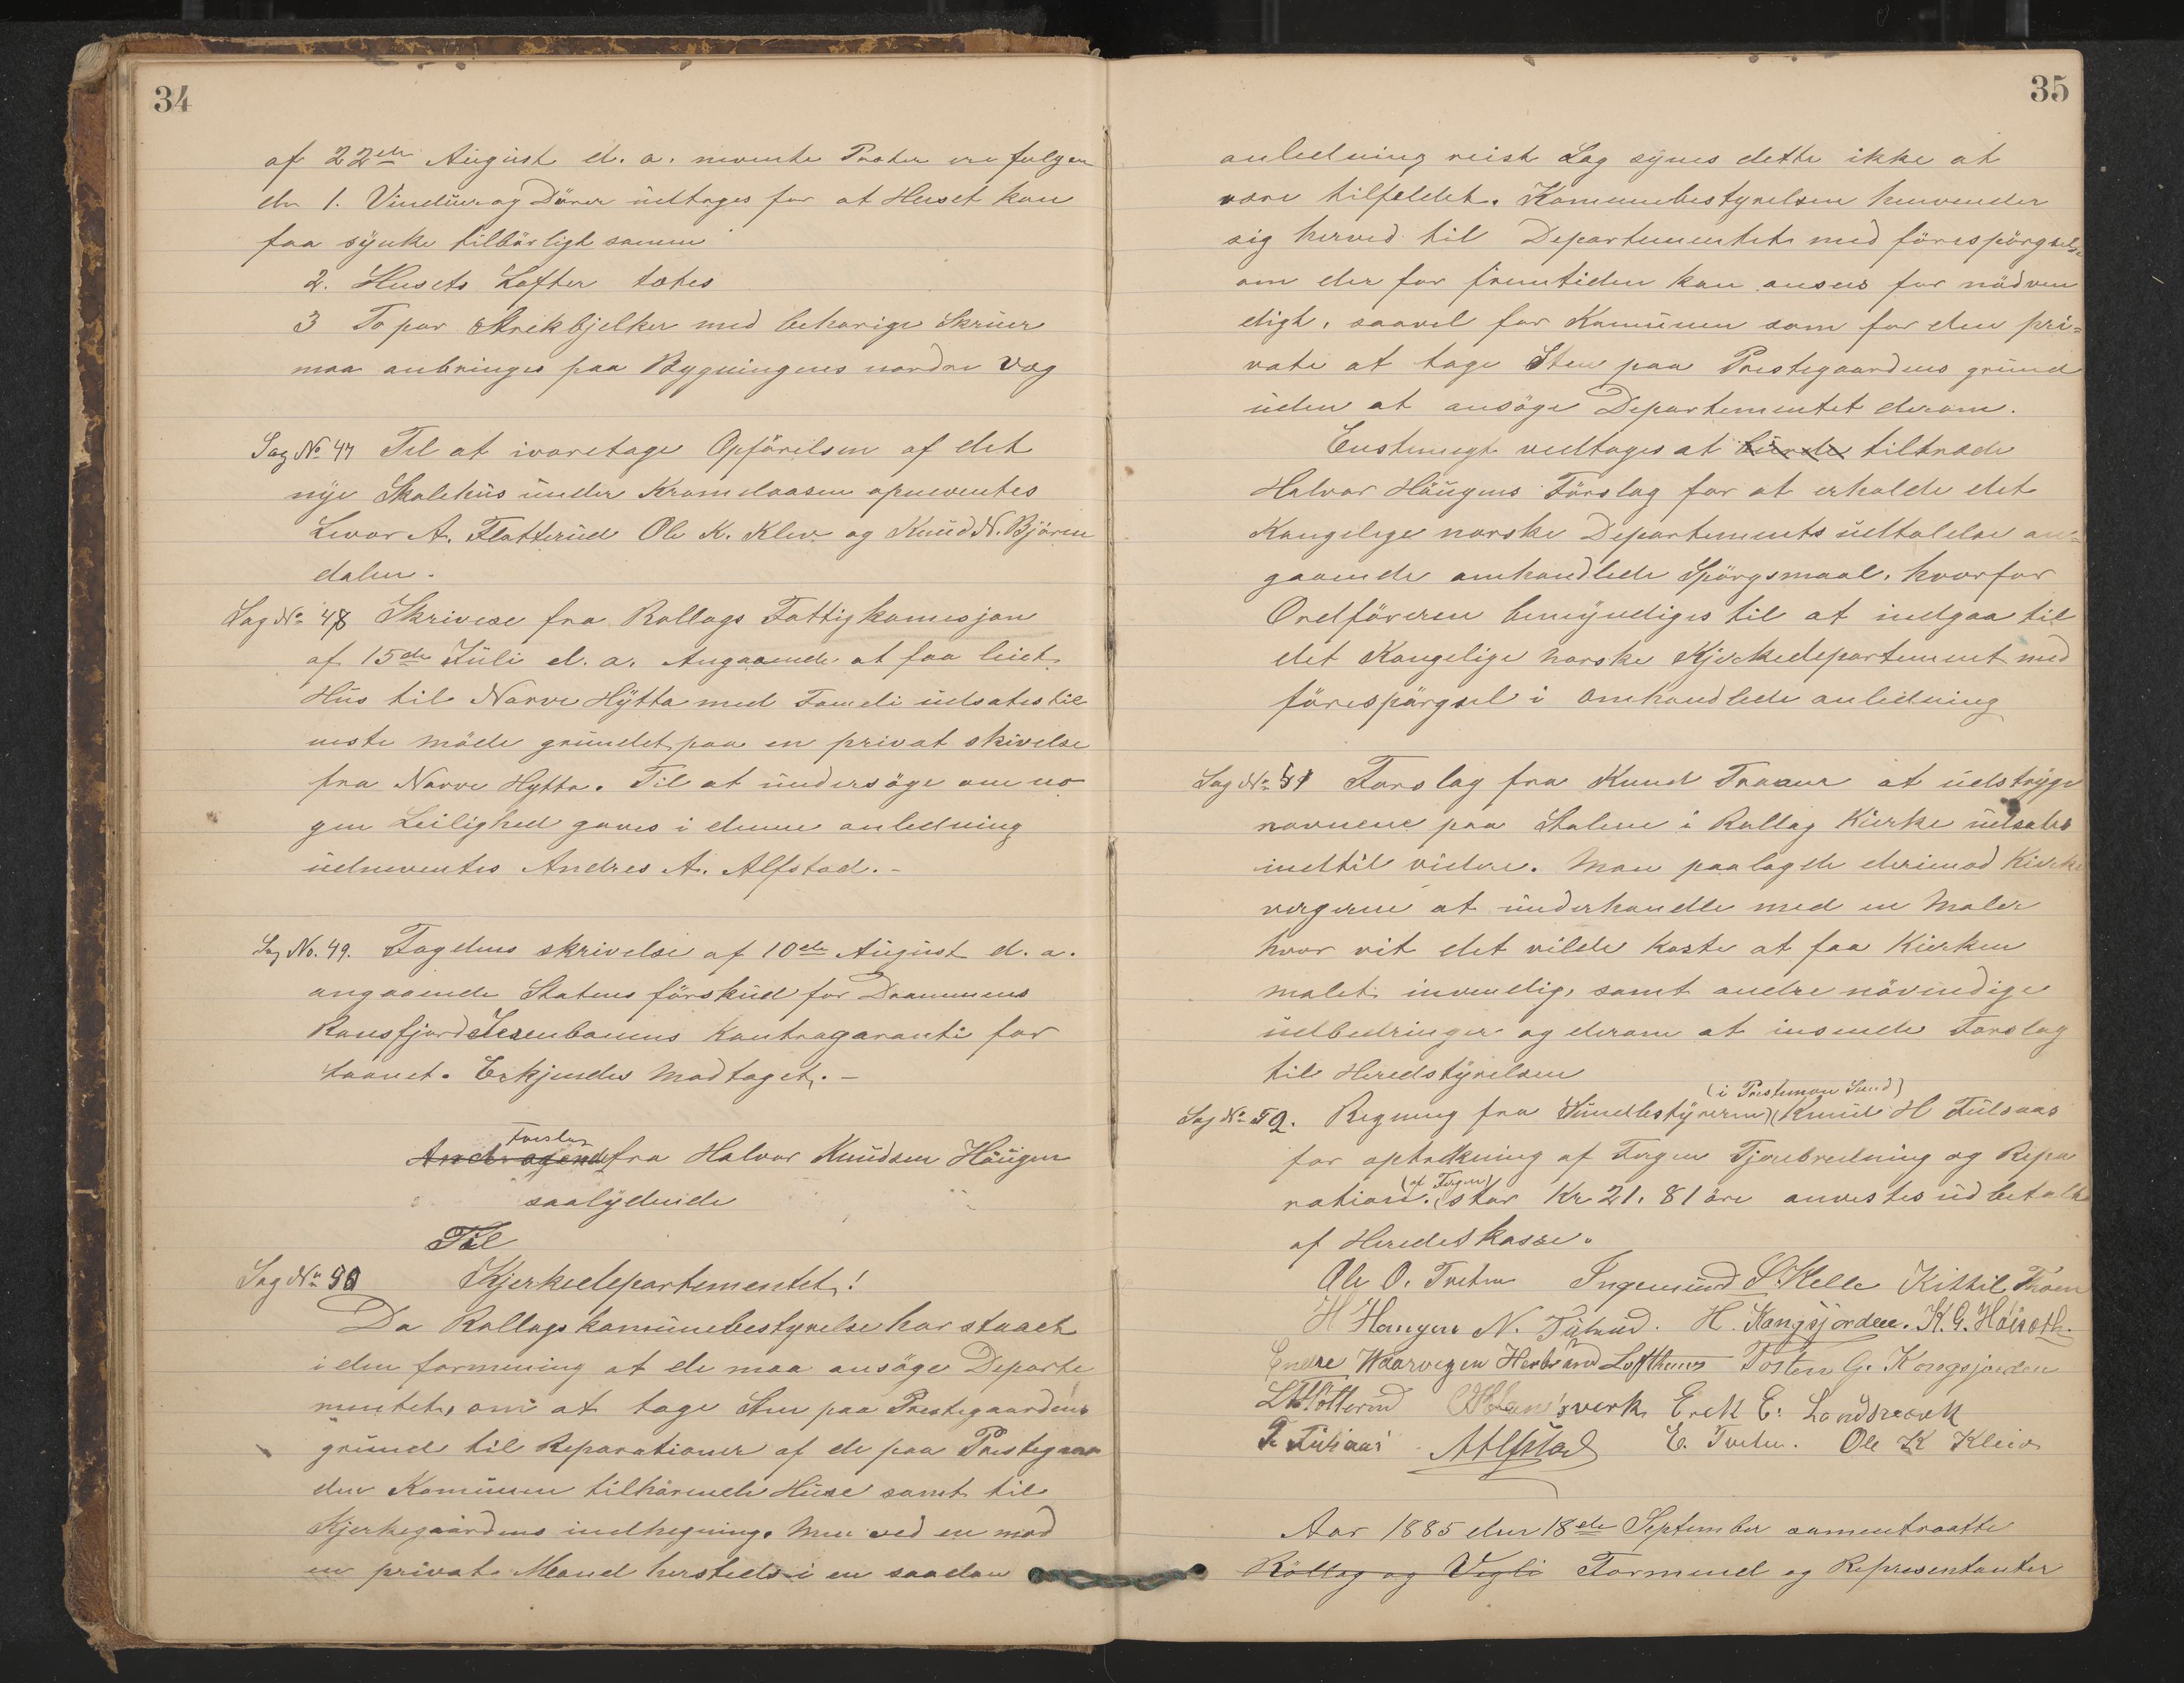 34
af 22de August d. a. nevnte Poster ere følgen
de 1. Vinduer og Dörer udtages for at Huset kan
faa sÿnke tilbörligt samen
2. Husets Lofter tætes
3 To par Strekbjelker med behørige Skruer
maa anbringes paa Bygningens nordre Væg
Sag No 47 Til at ivaretage Opförelsen af det
nye Skolehus under Kromdaasen opnevntes
Levor A. Flatterud Ole K. Klev og Knud N. Björen
dalen.
Sag No 48 Skrivese fra Rollags Fattigkomesjon
af 15de Juli d. a. Angaaende at faa leiet
Hus til Narve Hÿtta med Fameli udsates til
neste Möde grundet paa en privat skivelse
fra Narve Hytta. Til at undersöge om no
gen Leilighed gaves i denne anledning
udnevntes Andres A. Alfstad. -
Sag No. 49. Fogdens skrivelse af 10de August d. a.
angaaende Statens förskud for Drammens
Ransfjord Jesenbanens Kontragaranti for
laanet. Erkjendes Modtaget. -
Forslag
Andragende fra Halvor Knudsen Höugen
saalÿdende
Til
Sag No 50 Kjerkedepartementet!
Da Rollags komunebestyrelse har staaet
i den formening at de maa ansöge Departe
mentet, om at tage Sten paa Prestegaardens
grund til Reparationer af de paa Prestegaar
den Komunen tilhörende Huse samt til
Kjerkegaardens indhegning. Men ved en mod
en privat Mand hersteds i en saadan
35
anledning reist Sag sÿnes dette ikke at
være tilfeldet. Komunebestyrelsen henvender
sig herved til Departementet med förespörgsel
om der for fremtiden kan anses for nödven
digt, saavel for Komunen som for den pri=
vate at tage Sten paa Prestegaardens grund
uden at ansöge Departementet derom.
Enstemigt vedtages at burde tiltræde
Halvor Höugens Förslag for at erholde det
Kongelige norske Departements udtalelse an=
gaaende omhandlede Spörgsmaal, hvorfor
Ordföreren bemÿndiges til at indgaa til
det Kongelige norske Kjerkedepartement med
förespörgsel i omhandlede anledning
Sag No 51 Forslag fra Knud Traaen at udstrÿge
navnene paa Stolene i Rollag Kierke udsates
indtil videre. Man paalagde derimod Kierke
vergerne at underhandle med en Maler
hvor vit det vilde koste at faa Kierken
malet invendig, samt andre növendige
udbedringer og derom at insende Forslag
til Heredstÿrelsen
(i Prestemoen Sund)
Sag No 52. Regning fra Sundbestÿreren Knud H Fulsaas
for optrekning af Fergen Tjærebredning og Repa
(af Fergen)
ration. stor Kr 21. 81 öre anvestes udbetalt
af Heredskasse.
Ole O. Tveten Ingemund S. Kelle Kittil Traaen
H Haugen N. Fulsrud. H. Kongsjorden. K. G. Höiseth.
Endre Waarvegen Herbrand Lofthuus Tosten G. Kongsjorden
L Flatterud Erek E: Landsverk
T. Fulsaas AAlfstad E. Tveten. Ole K Kleiv
Aar 1885 den 18de September samentraatte
Rollag og Vegli Formend og Representanter